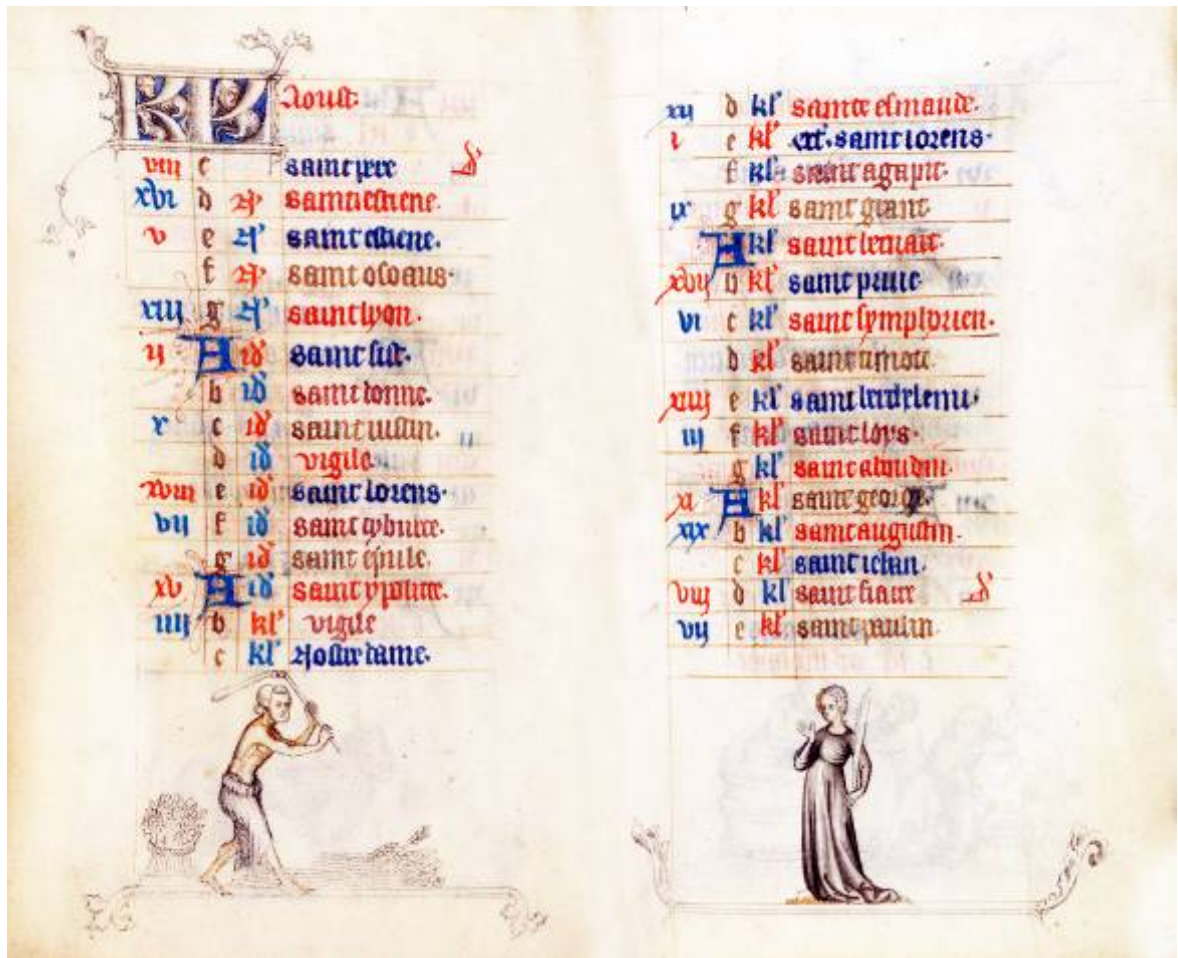 KL Aoust.
viii c saint pere d'
xvi d N saint estiene.
v e N saint estiene.
f N saint osoaus.
xiii g N saint lyon.
ii A id saint sist.
b id saint donne.
x c id saint iustin.
d id vigile.
xviii e id saint lorens.
vii f id saint tyburce.
g id saint
xv A id saint ypolite.
iiii b kl' vigile
c kl' Nostre dame.
xii d kl' sainte
i e kl' oct. saint lorens.
f kl' saint agapit.
ix g kl' saint
A kl' saint
xvii b kl' saint prive
vi c kl' saint symphorien.
d kl' saint timote.
xiiii e kl' saint
iii f kl' saint loys.
g kl' saint
xi A kl' saint george.
xix b kl' saint augustin.
c kl' saint iehan.
viii d kl' saint fiacre d'
vii e kl' saint paulin.